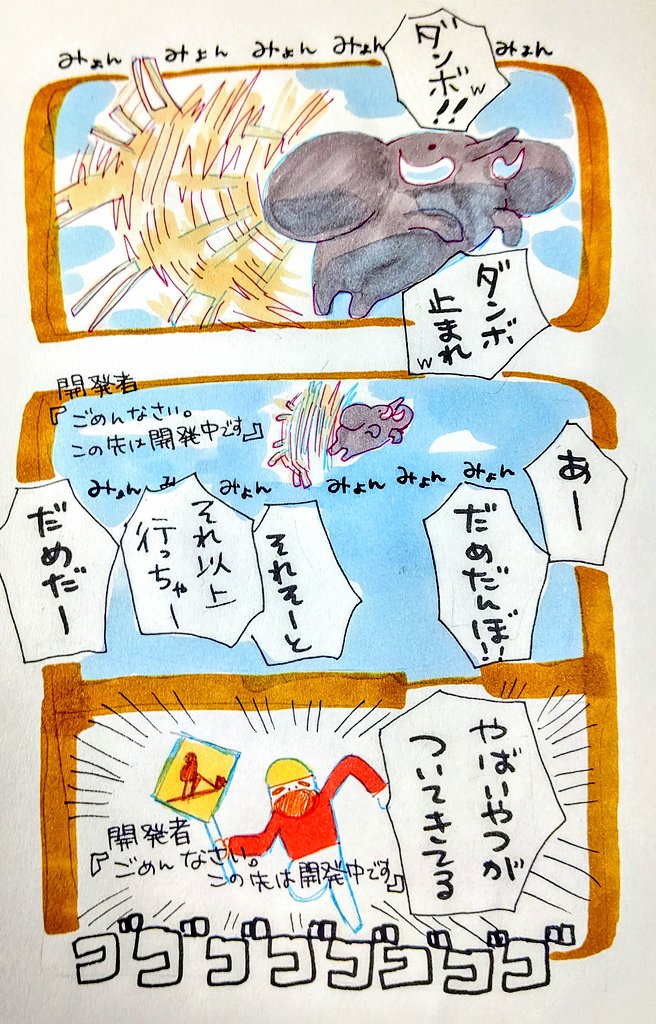 みょん みょん みょん みょん みょん
ダンボw!!
ダンボ
止まれw
開発者
『ごめんなさい。
この先は開発中です』
みょん み みょん みょん みょん みょん
あー
だめだんぼ!!
それそーと
それ以上
行っちゃー
だめだー
やばいやつが
ついてきてる
開発者
『ごめんなさい。
この先は開発中です』
ゴゴゴゴゴゴゴゴ